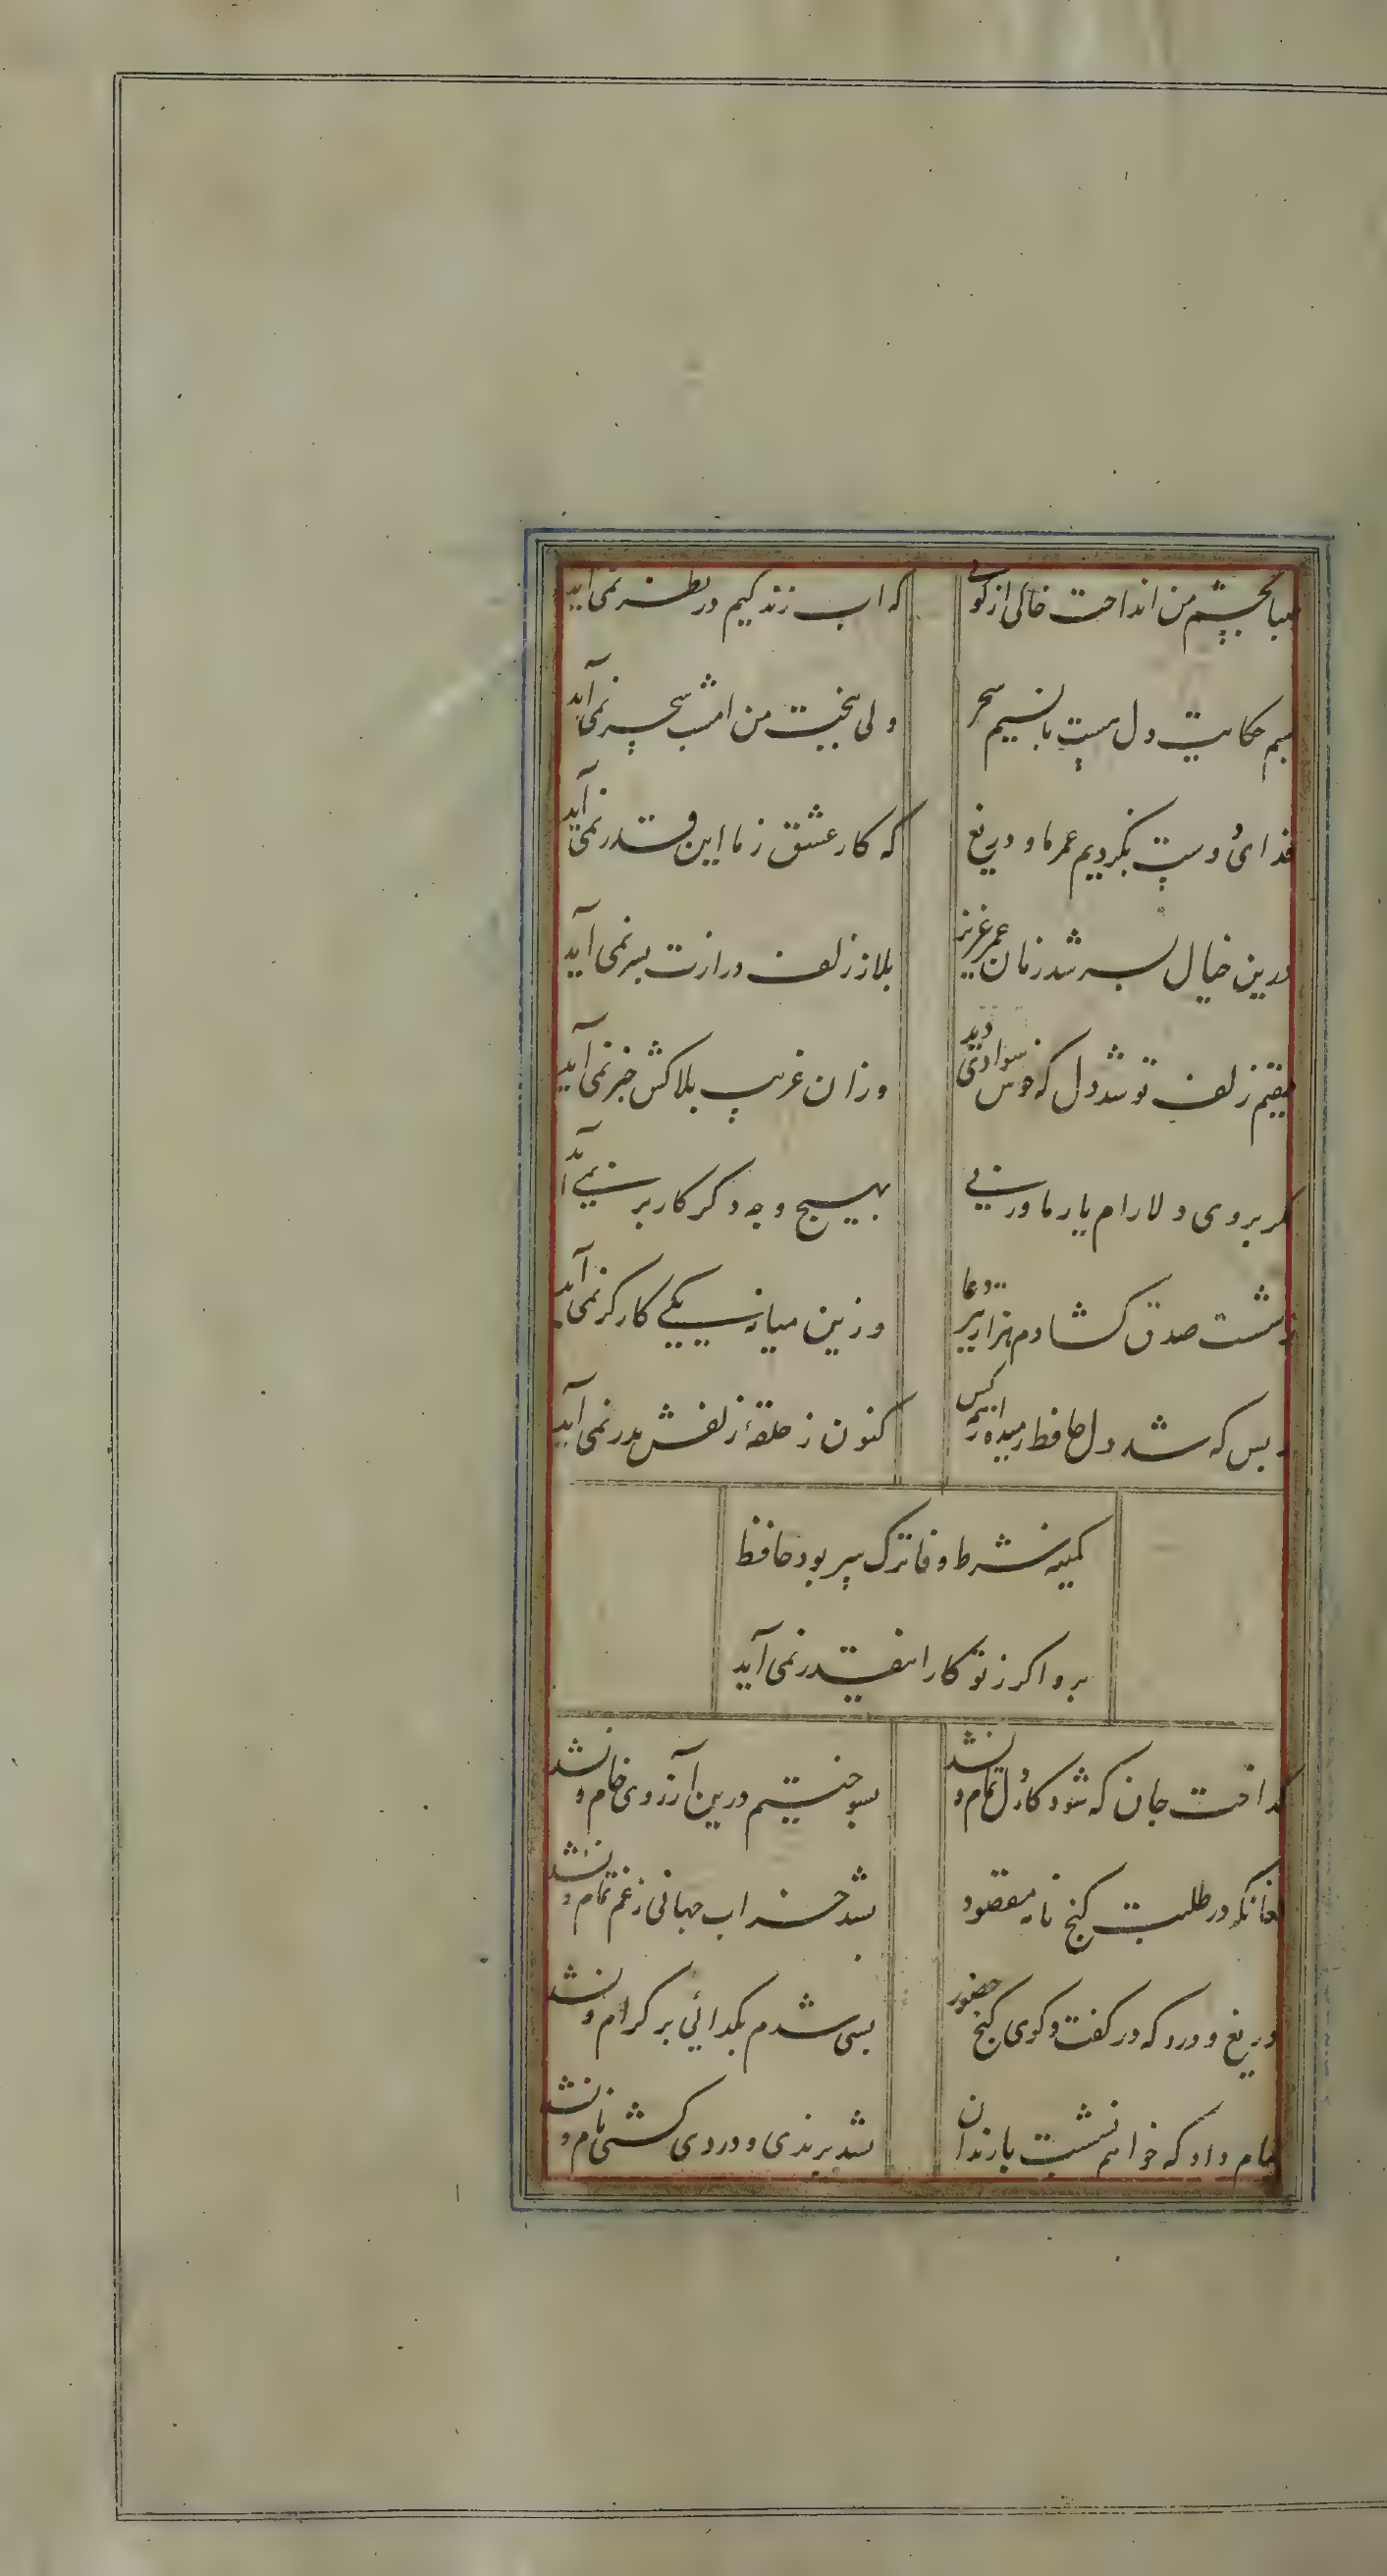 صبا بچشم من انداخت خاکی از کویی که اب زندگیم در نظر نمی آید
بسم حکایت دل هست با نسیم سحر ولی ببخت من امشب سحر نمی آید
فدای دوست نکردیم عمر ما و دریغ که کار عشق ز ما این قدر نمی آید
درین خیال بسر شد زمان عمر عزیز بلا ز زلف درازت بسر نمی آید
مقیم زلف تو شد دل که خوش سوادی دید وزان غریب بلاکش خبر نمی آید
مگر بروی دلارام یار ما ورنی بهیچ وجه دگر کار بر نمی آید
ز شست صدق کشادم هزار تیر دعا وزین میانه یکی کارگر نمی آید
ز بس که شد دل حافظ رمیده از همه کس کنون ز حلقهٔ زلفش بدر نمی آید
کمینه شرط وفا ترک سر بود حافظ
برو اگر ز تو کار اینقدر نمی آید
گداخت جان که شود کار دل تمام و نشد بسوختیم درین آرزوی خام و نشد
فغانکه در طلب گنج نامه مقصود شدم خراب جهانی ز غم تمام و نشد
دریغ و درد که در گفت و گوی گنج حضور بسی شدم بگدائی بر کرام و نشد
پیام داد که خواهم نشست با رندان بشد برندی و دردی کشی نام و نشد